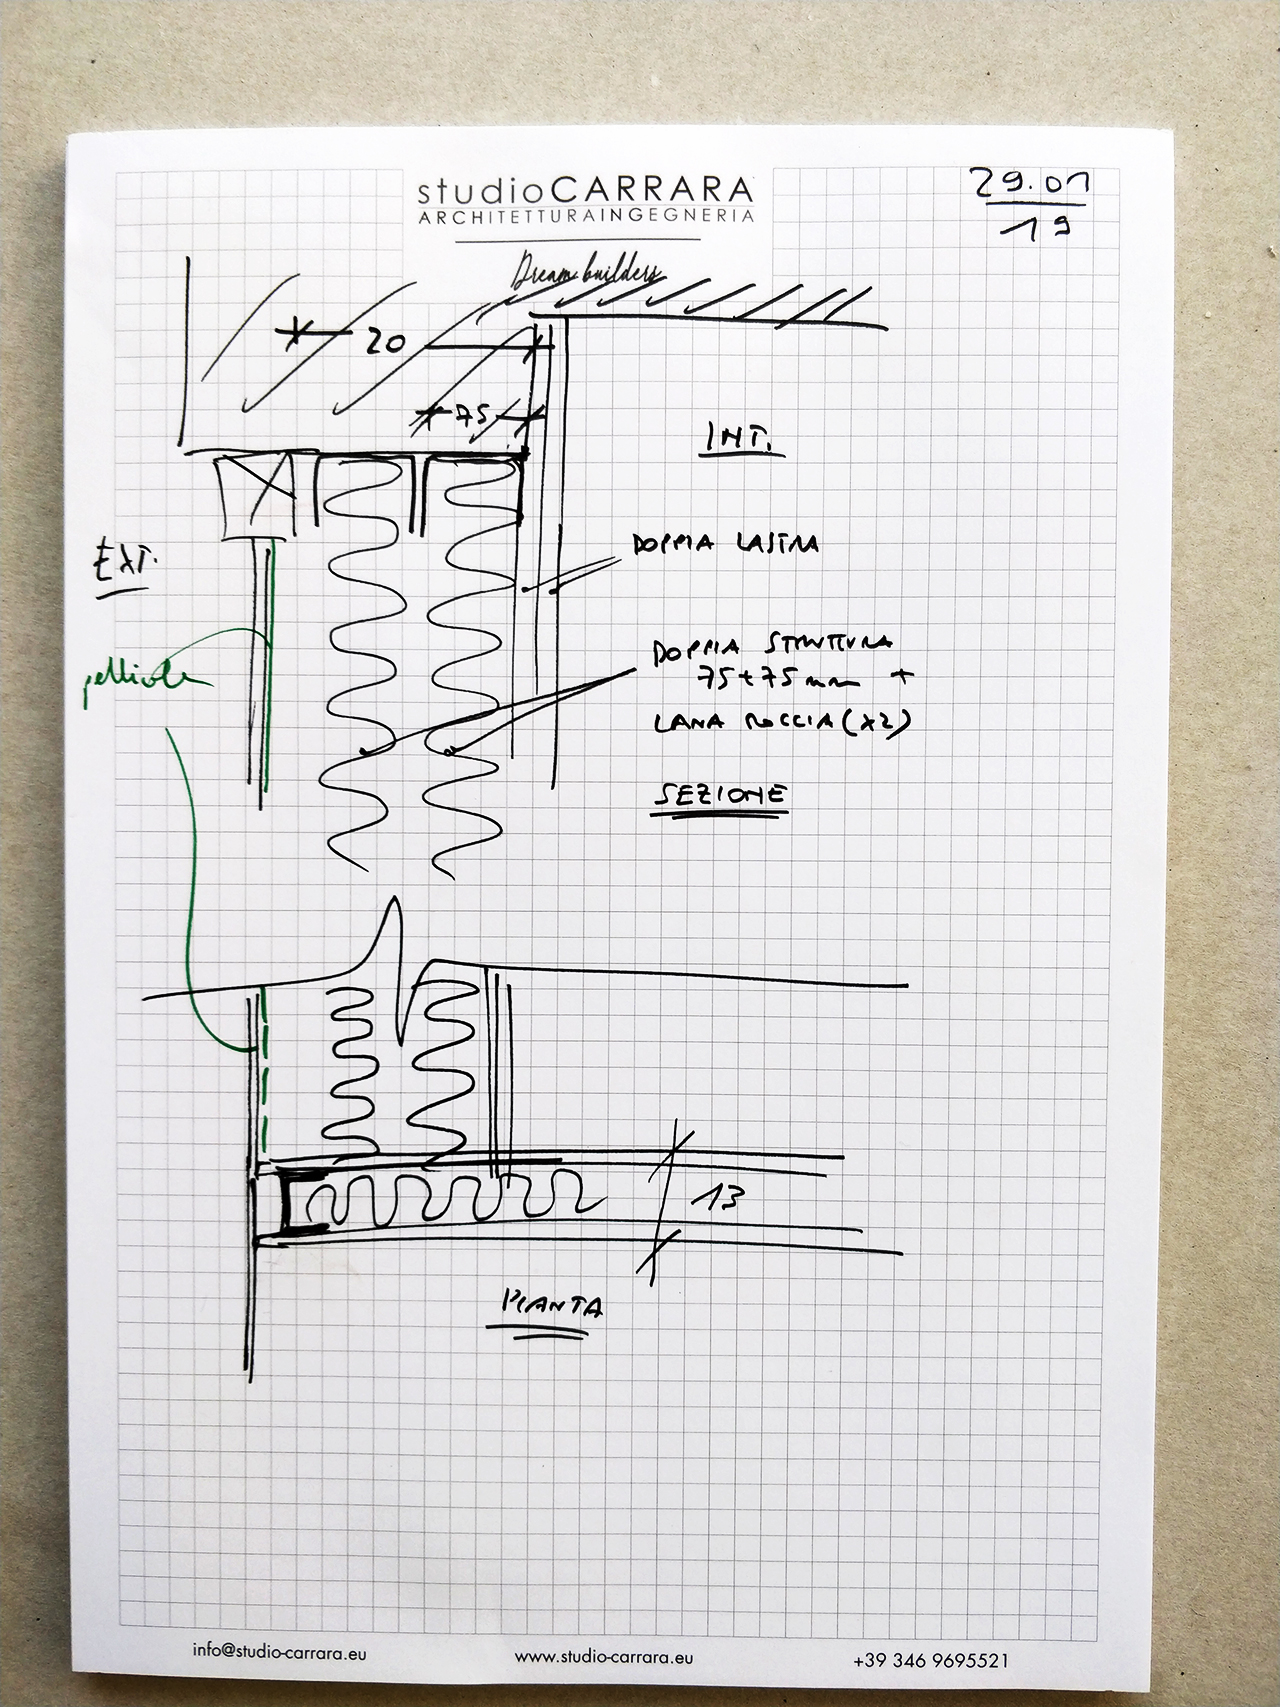 studioCARRARA
ARCHITETTURAINGEGNERIA
Dream builders
29.01
19
20
75
INT.
EXT.
DOPPIA LASTRA
pellicola
DOPPIA STRUTTURA
75+75 mm +
LANA ROCCIA (x2)
SEZIONE
13
PIANTA
info@studio-carrara.eu
www.studio-carrara.eu
+39 346 9695521